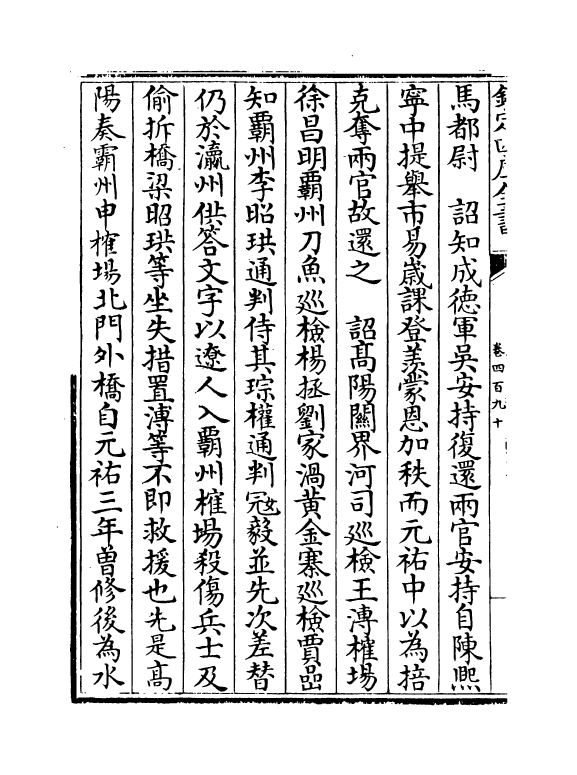 欽定四庫全書
卷四百九十
馬都尉　詔知成徳軍吳安持復還兩官安持自陳熈
寧中提舉市易嵗課登羨蒙恩加秩而元祐中以為掊
克奪兩官故還之　詔髙陽關界河司廵檢王溥榷場
徐昌明覇州刀魚廵檢楊拯劉家渦黄金寨廵檢賈嵒
知覇州李昭珙通判侍其琮權通判冦毅並先次差替
仍於瀛州供答文字以遼人入覇州榷場殺傷兵士及
偷折橋梁昭珙等坐失措置溥等不即救援也先是髙
陽奏霸州申榷場北門外橋自元祐三年曽修後為水